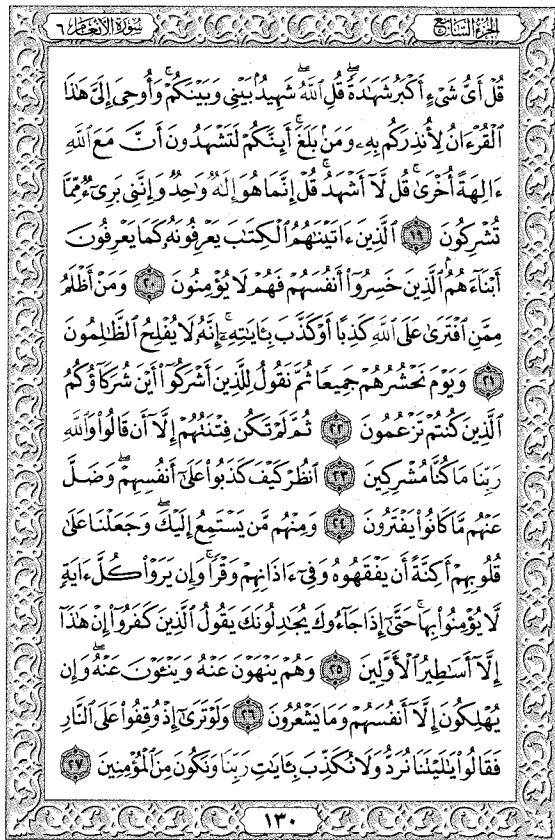 الجزء السابع
سورة الأنعام ٦
قُلْ أَيُّ شَيْءٍ أَكْبَرُ شَهَٰدَةً ۖ قُلِ ٱللَّهُ ۖ شَهِيدٌۢ بَيْنِى وَبَيْنَكُمْ ۚ وَأُوحِىَ إِلَىَّ هَٰذَا
ٱلْقُرْءَانُ لِأُنذِرَكُم بِهِۦ وَمَنۢ بَلَغَ ۚ أَئِنَّكُمْ لَتَشْهَدُونَ أَنَّ مَعَ ٱللَّهِ
ءَالِهَةً أُخْرَىٰ ۚ قُل لَّآ أَشْهَدُ ۚ قُلْ إِنَّمَا هُوَ إِلَٰهٌ وَٰحِدٌ وَإِنَّنِى بَرِىٓءٌ مِّمَّا
تُشْرِكُونَ ١٩ ٱلَّذِينَ ءَاتَيْنَٰهُمُ ٱلْكِتَٰبَ يَعْرِفُونَهُۥ كَمَا يَعْرِفُونَ
أَبْنَآءَهُمُ ۘ ٱلَّذِينَ خَسِرُوٓا۟ أَنفُسَهُمْ فَهُمْ لَا يُؤْمِنُونَ ٢٠ وَمَنْ أَظْلَمُ
مِمَّنِ ٱفْتَرَىٰ عَلَى ٱللَّهِ كَذِبًا أَوْ كَذَّبَ بِـَٔايَٰتِهِۦٓ ۗ إِنَّهُۥ لَا يُفْلِحُ ٱلظَّٰلِمُونَ
٢١ وَيَوْمَ نَحْشُرُهُمْ جَمِيعًا ثُمَّ نَقُولُ لِلَّذِينَ أَشْرَكُوٓا۟ أَيْنَ شُرَكَآؤُكُمُ
ٱلَّذِينَ كُنتُمْ تَزْعُمُونَ ٢٢ ثُمَّ لَمْ تَكُن فِتْنَتُهُمْ إِلَّآ أَن قَالُوا۟ وَٱللَّهِ
رَبِّنَا مَا كُنَّا مُشْرِكِينَ ٢٣ ٱنظُرْ كَيْفَ كَذَبُوا۟ عَلَىٰٓ أَنفُسِهِمْ ۚ وَضَلَّ
عَنْهُم مَّا كَانُوا۟ يَفْتَرُونَ ٢٤ وَمِنْهُم مَّن يَسْتَمِعُ إِلَيْكَ ۖ وَجَعَلْنَا عَلَىٰ
قُلُوبِهِمْ أَكِنَّةً أَن يَفْقَهُوهُ وَفِىٓ ءَاذَانِهِمْ وَقْرًا ۚ وَإِن يَرَوْا۟ كُلَّ ءَايَةٍ
لَّا يُؤْمِنُوا۟ بِهَا ۚ حَتَّىٰٓ إِذَا جَآءُوكَ يُجَٰدِلُونَكَ يَقُولُ ٱلَّذِينَ كَفَرُوٓا۟ إِنْ هَٰذَآ
إِلَّآ أَسَٰطِيرُ ٱلْأَوَّلِينَ ٢٥ وَهُمْ يَنْهَوْنَ عَنْهُ وَيَنْـَٔوْنَ عَنْهُ ۖ وَإِن
يُهْلِكُونَ إِلَّآ أَنفُسَهُمْ وَمَا يَشْعُرُونَ ٢٦ وَلَوْ تَرَىٰٓ إِذْ وُقِفُوا۟ عَلَى ٱلنَّارِ
فَقَالُوا۟ يَٰلَيْتَنَا نُرَدُّ وَلَا نُكَذِّبَ بِـَٔايَٰتِ رَبِّنَا وَنَكُونَ مِنَ ٱلْمُؤْمِنِينَ ٢٧
١٣٠